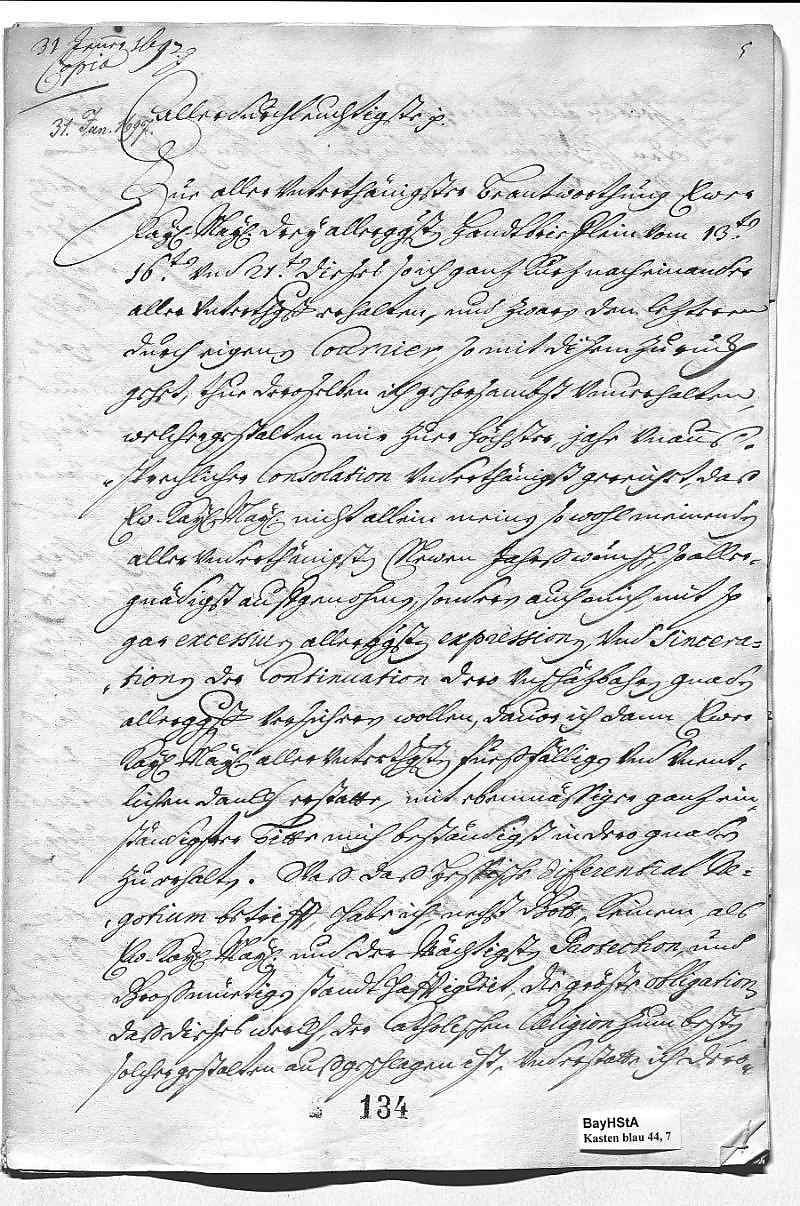 31 Jenner 1697
Copia
5
31. Jan. 1697.
Allerdurchleuchtigste p.
Zue aller Unterthänigster Beantworthung Ewer
Kayl. Mayl. drey allerggsten Handtbriefflein vom 13.to
16.to und 21.to dieses so ich ganz kurz nacheinander
aller Unterthgst erhalten, und zwarn den lezteren
durch eigenen Courrier, so mit disem zuruckh
gehet, thue deroselben ich gehorsambst Unuerhalten,
welchergestalten mir zuer höchster, jahe Unaus-
sprechlicher Consolation Unterthänigst gereichet, das
Ew. Kayl. Mayl. nicht allein meinen so wohl meinenden
aller Unterthänigsten Newen Jahrß wünsch, so aller-
gnädigst auffgenohmen, sondern auch mich mit so
gar excessiuen allerggsten expressionen Und Sincera-
tionen der Continuation dero Unschäzbahren gnaden
allerggst Versichern wollen, dauor ich dann Ewer
Kayl. Mayl. aller Unterthgsten fueßfälligen Und Unent-
lichen danckh erstatte, mit ebenmässiger ganz in-
ständigster Bitte mich beständigst in dero gnaden
zu erhalten. Waß daß differential Ne-
gotium betrifft, habe ich nechst Gott, keinem als
Ew. Kayl. Mayl. und der Mächtigsten Protection, und
Großmüetigen standthafftigkeit, die gröste obligation
daß dieses werckh, der Catholischen Religion zum besten
solchergestalten außgeschlagen ist, Und erstatte ich dero-
134
BayHStA
Kasten blau 44, 7